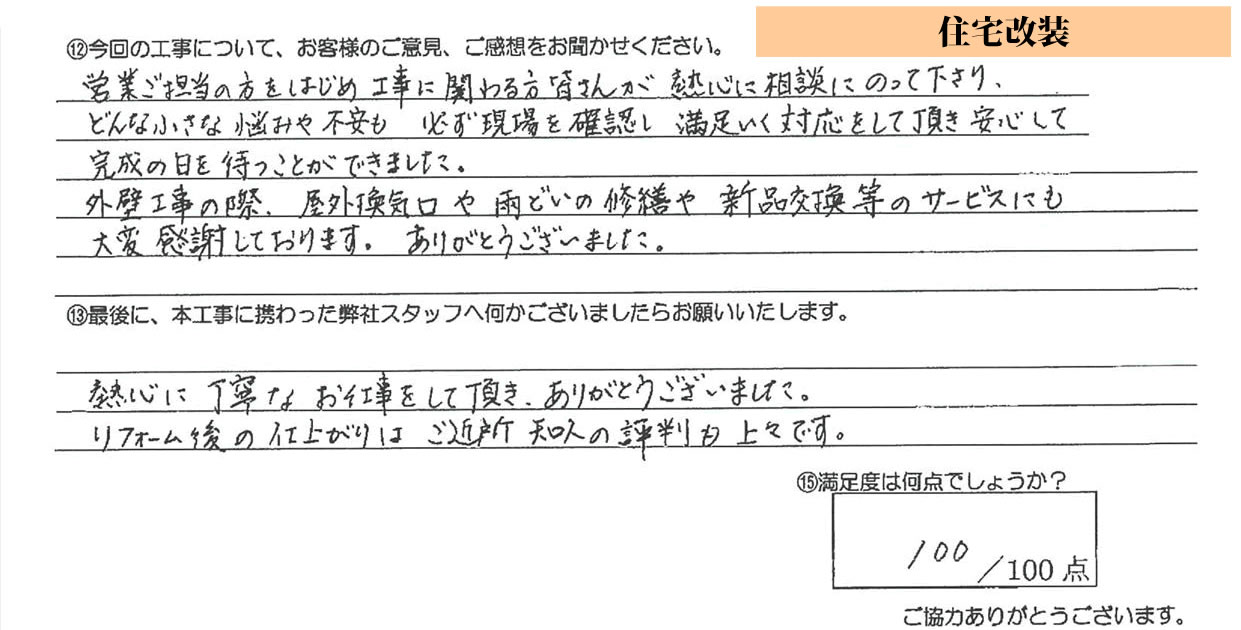 住宅改装
⑫今回の工事について、お客様のご意見、ご感想をお聞かせください。
営業ご担当の方をはじめ工事に関わる方皆さんが熱心に相談にのって下さり、
どんな小さな悩みや不安も 必ず現場を確認し 満足いく対応をして頂き安心して
完成の日を待つことができました。
外壁工事の際、屋外換気口や雨どいの修繕や新品交換等のサービスにも
大変感謝しております。ありがとうございました。
⑬最後に、本工事に携わった弊社スタッフへ何かございましたらお願いいたします。
熱心に丁寧なお仕事をして頂き、ありがとうございました。
リフォーム後の仕上がりはご近所知人の評判も上々です。
⑮満足度は何点でしょうか？
100／100点
ご協力ありがとうございます。